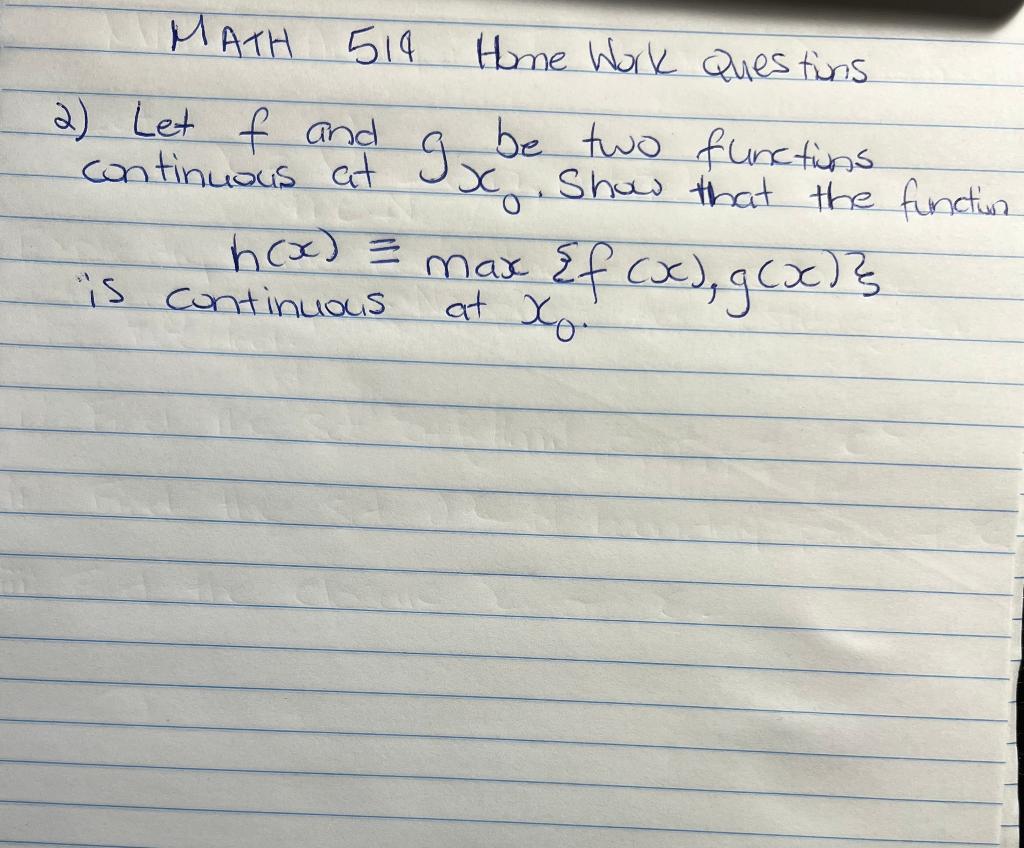 MATH 519 Home Work Questions
2) Let f and g be two functions
continuous at x₀. Show that the function
h(x) ≡ max {f(x), g(x)}
is continuous at x₀.